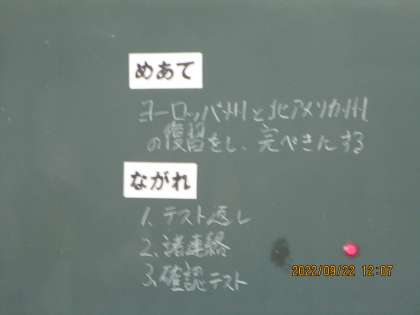 めあて
ヨーロッパ州と北アメリカ州
の復習をし、完ぺきにする
ながれ
1. テスト返し
2. 諸連絡
3. 確認テスト
2022/09/22 12:07